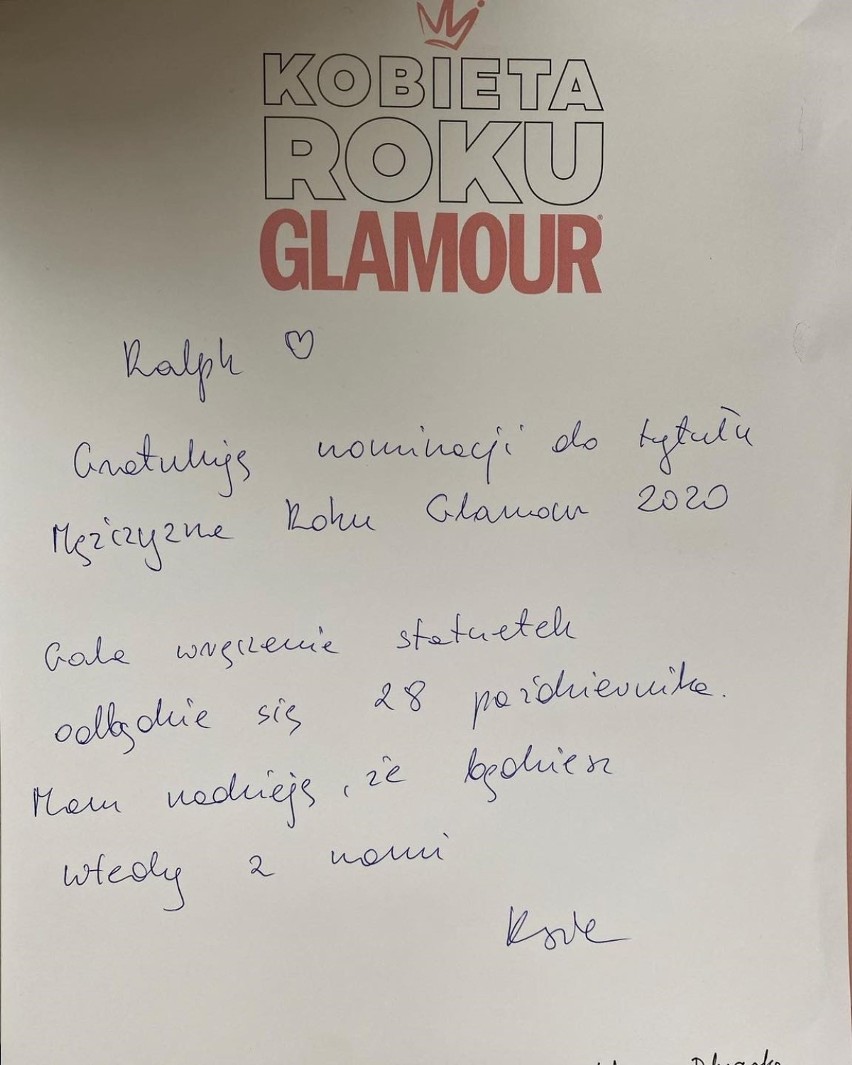 KOBIETA
ROKU
GLAMOUR
Ralph ♡
Gratuluję nominacji do tytułu
Mężczyzna Roku Glamour 2020
Gala wręczenia statuetek
odbędzie się 28 października.
Mam nadzieję, że będziesz
wtedy z nami